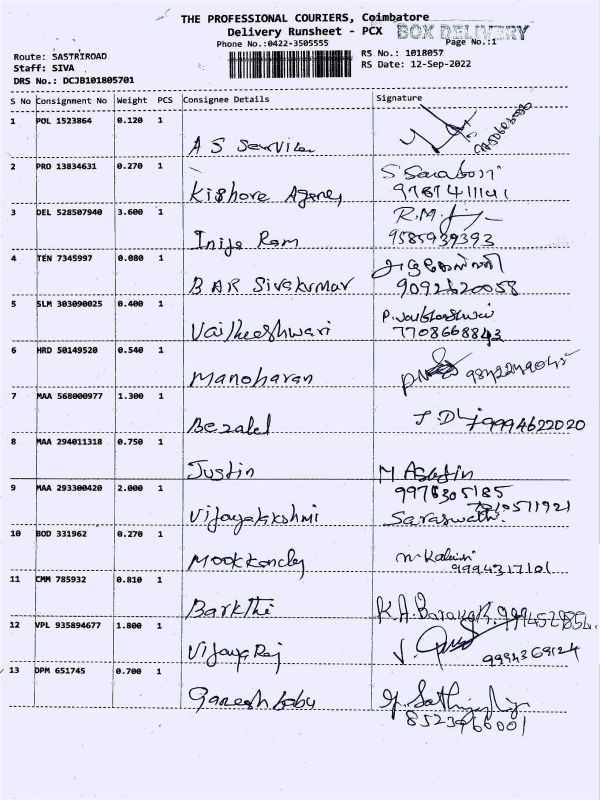 THE PROFESSIONAL COURIERS, Coimbatore
Delivery Runsheet - PCX BOX DELIVERY
Phone No.:0422-3505555 Page No.:1
Route: SASTRIROAD RS No.: 1018057
Staff: SIVA RS Date: 12-Sep-2022
DRS No.: DCJB101805701
S No Consignment No Weight PCS Consignee Details Signature
1 POL 1523864 0.120 1
A S Service
2 PRO 13834631 0.270 1
Kishore Agency
3 DEL 528507940 3.600 1 R.M.
Inija Ram 9585939393
4 TEN 7345997 0.080 1
B A R Sivakumar 9092620058
5 SLM 303090025 0.400 1
Vaitheeshwari 7708668843
6 HRD 50149520 0.540 1
Manoharan
7 MAA 568000977 1.300 1
Bezalel 9994622020
8 MAA 294011318 0.750 1
Justin M
9 MAA 293300420 2.000 1 9976305185
Vijayalakshmi Saraswathi.
10 BOD 331962 0.270 1
9994317101
11 CMM 785932 0.810 1
Barkthi K.A.
12 VPL 935894677 1.800 1
VijayaRaj 9994369124
13 DPM 651745 0.700 1
Ganesh babu
8523966001